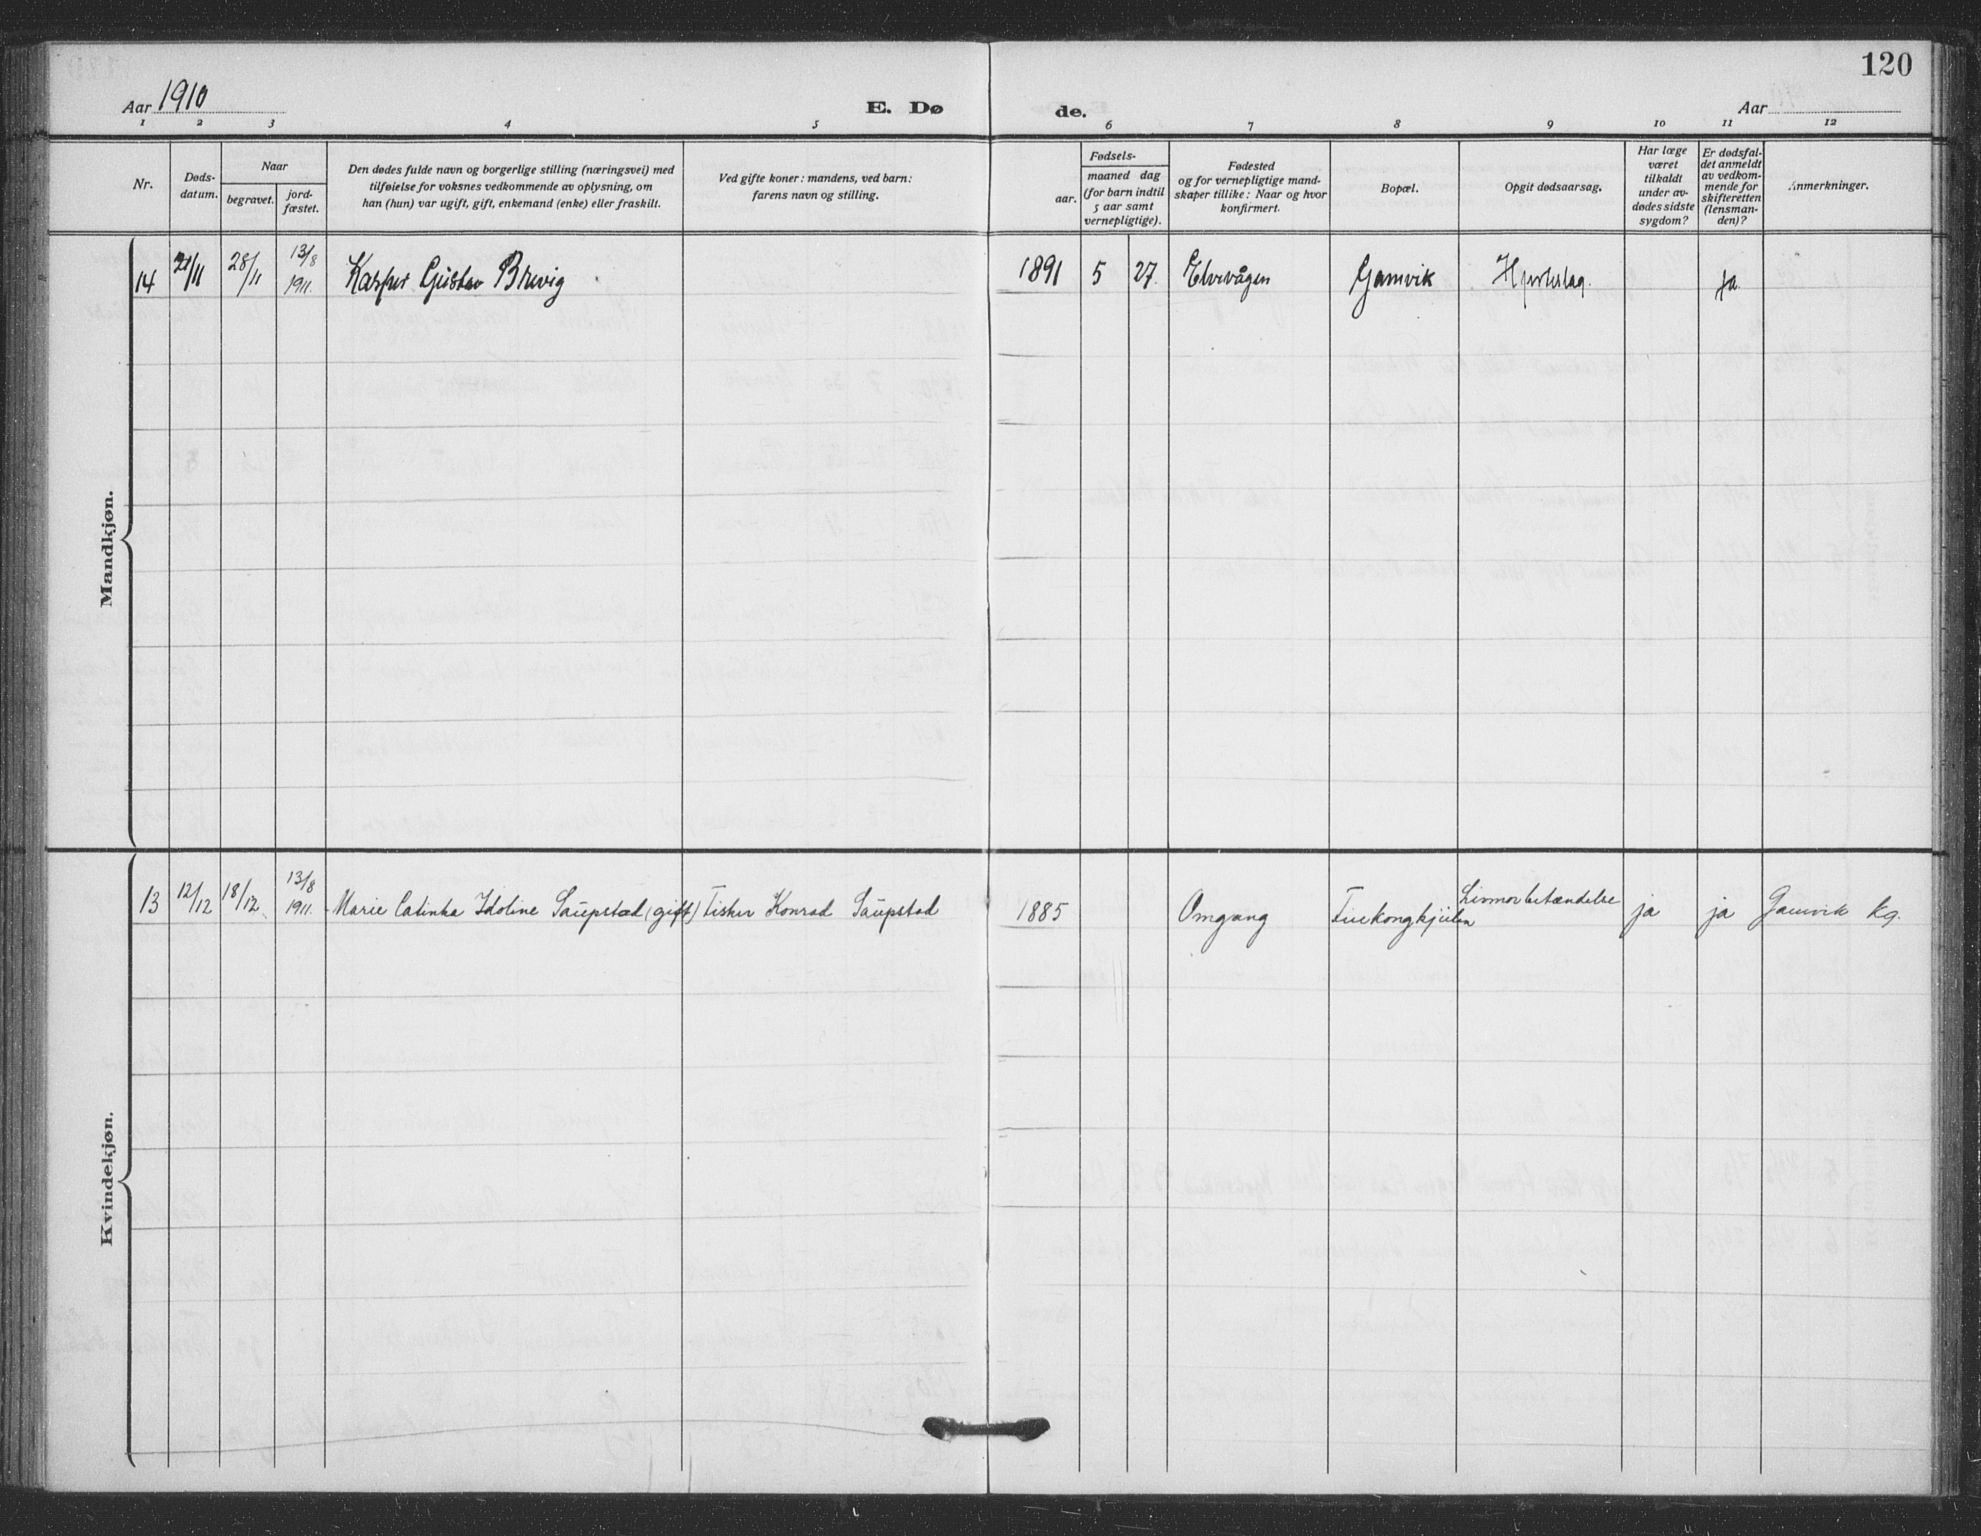 120
Aar 1910
E. Dø
de.
Aar
1 2 3 4 5 6 7 8 9 10 11 12
Nr.
Døds-
datum.
Naar
begravet.
jord-
fæstet.
Den dødes fulde navn og borgerlige stilling (næringsvei) med
tilføielse for voksnes vedkommende av oplysning, om
han (hun) var ugift, gift, enkemand (enke) eller fraskilt.
Ved gifte koner: mandens, ved barn:
farens navn og stilling.
Fødsels-
aar.
maaned dag
(for barn indtil
5 aar samt
vernepligtige).
Fødested
og for vernepligtige mand-
skaper tillike: Naar og hvor
konfirmert.
Bopæl.
Opgit dødsaarsag.
Har læge
været
tilkaldt
under av-
dødes sidste
sygdom?
Er dødsfal-
det anmeldt
av vedkom-
mende for
skifteretten
(lensman-
den)?
Anmerkninger.
Mandkjøn.
14 21/11 28/11 13/8 1911. Kasper Gustav Brevig 1891 5 27. Elvevågen Gamvik Hjerteslag. ja
Kvindekjøn.
13 12/12 18/12 13/8 1911. Marie Catinka Idoline Saupstad (gift) Fisker Konrad Saupstad 1885 Omgang Finkongkjeilen Livmorbetændelse ja ja Gamvik kg.